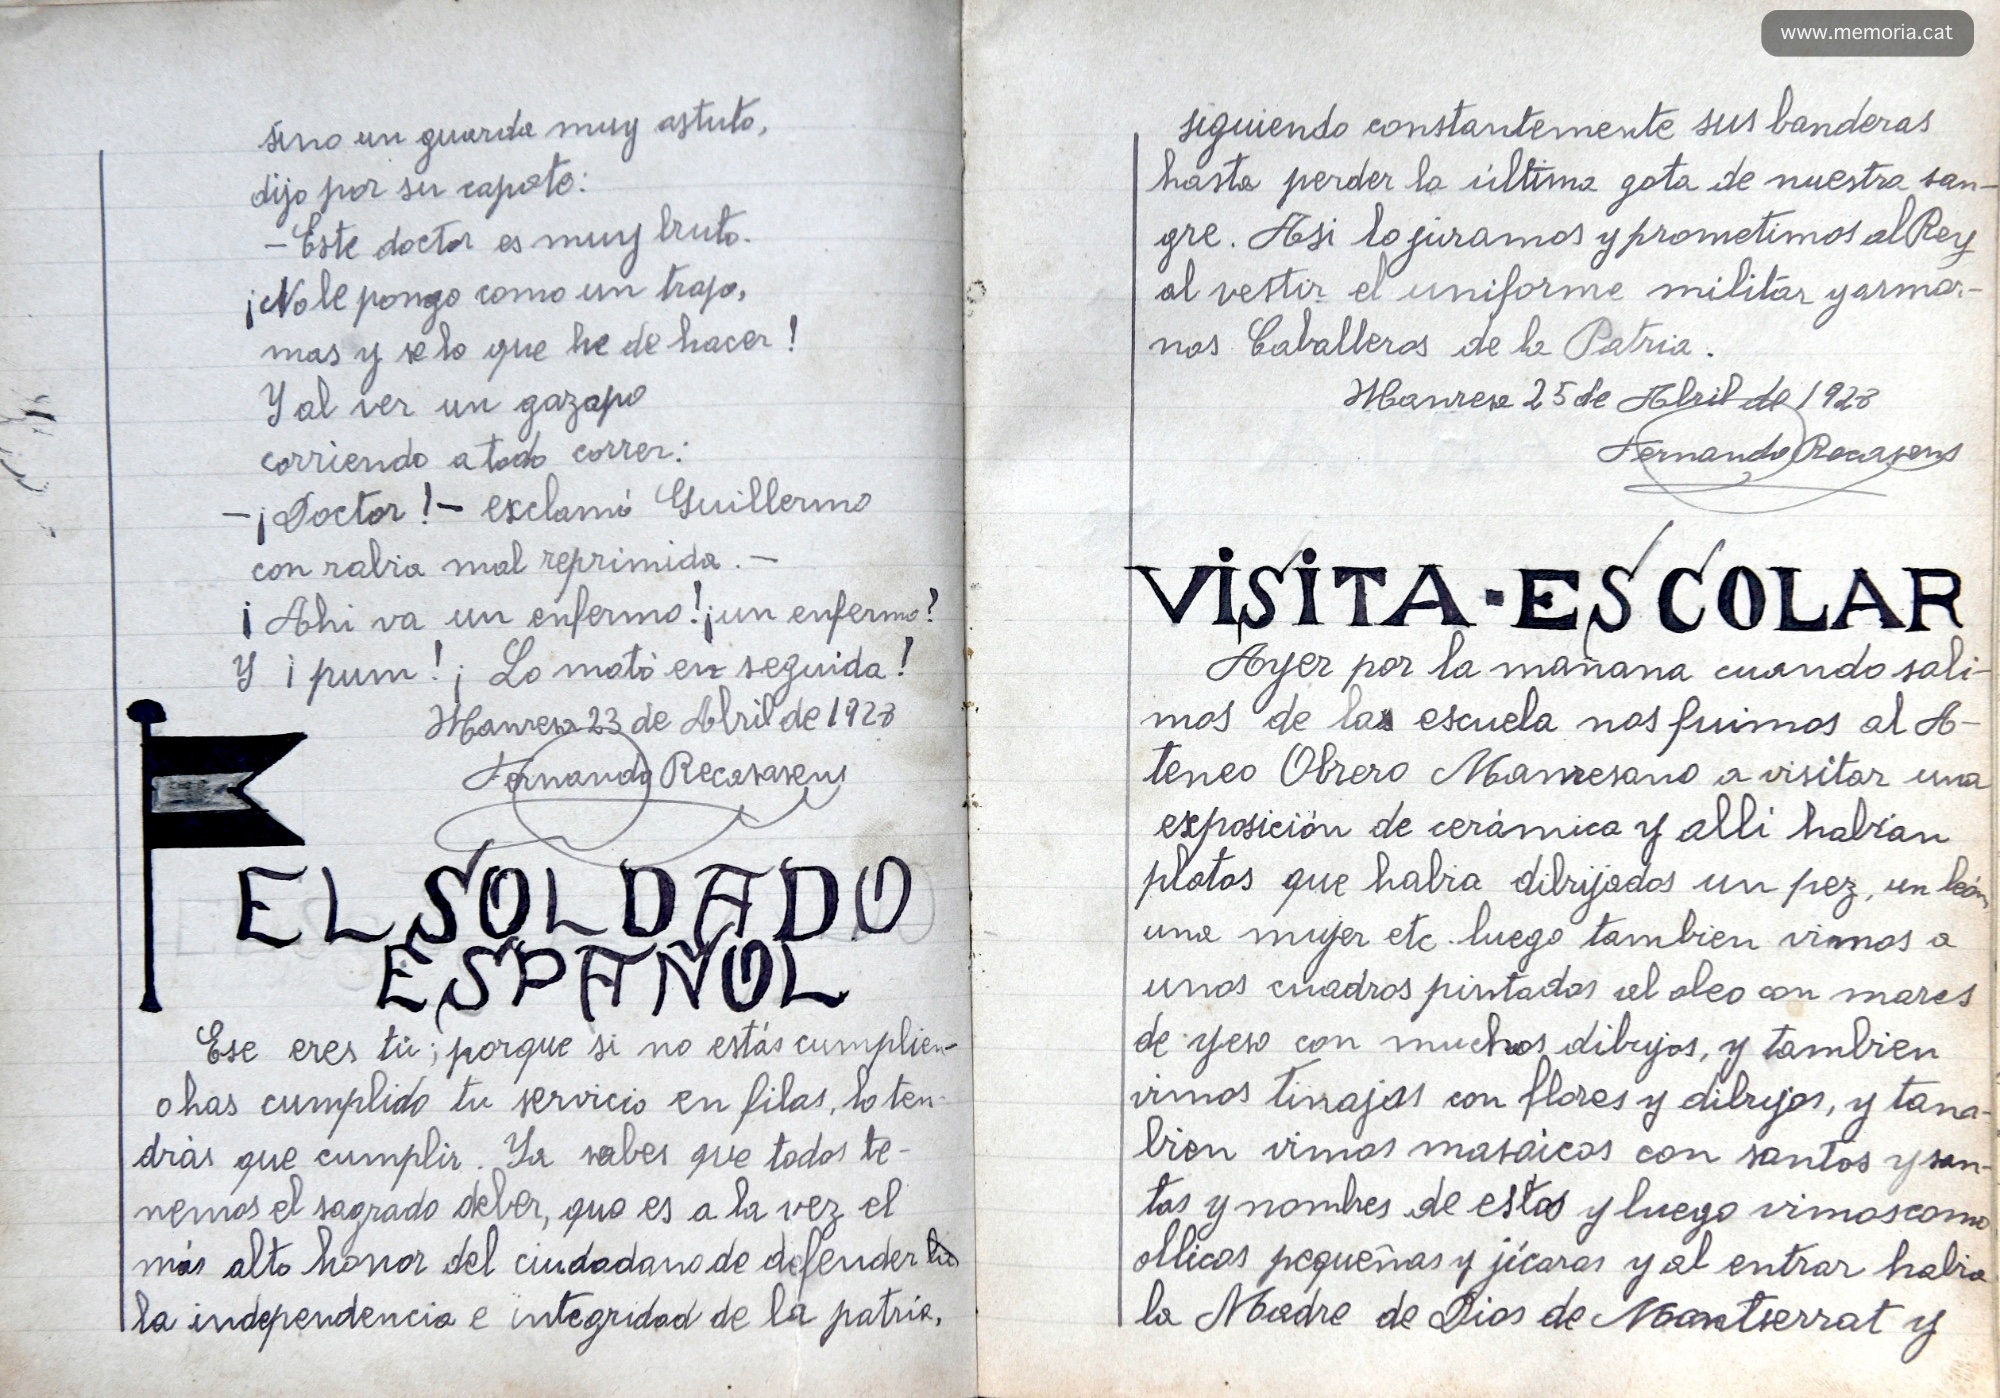 www.memoria.cat
sino un guarda muy astuto,
dijo por su capote:
—Este doctor es muy bruto.
¡No le pongo como un trapo,
mas y se lo que he de hacer!
Y al ver un gazapo
corriendo a todo correr:
—¡Doctor!— exclamó Guillermo
con rabia mal reprimida.—
¡Ahi va un enfermo! ¡un enfermo!
Y ¡pum! ¡Lo mató en seguida!
Manresa 23 de Abril de 1928
Fernando Recasens
EL SOLDADO
ESPAÑOL
Ese eres tú; porque si no estás cumplien-
o has cumplido tu servicio en filas, lo ten-
drás que cumplir. Ya sabes que todos te-
nemos el sagrado deber, que es a la vez el
más alto honor del ciudadano de defender
la independencia e integridad de la patria,
siguiendo constantemente sus banderas
hasta perder la última gota de nuestra san-
gre. Asi lo juramos y prometimos al Rey
al vestir el uniforme militar y armar-
nos Caballeros de la Patria.
Manresa 25 de Abril de 1928
Fernando Recasens
VISITA-ESCOLAR
Ayer por la mañana cuando sali-
mos de la escuela nos fuimos al A-
teneo Obrero Manresano a visitar una
exposición de cerámica y alli habian
platos que habia dibrijados un pez, un león,
una mujer etc. luego tambien vimos a
unos cuadros pintados al oleo con marcs
de yeso con muchos dibujos, y tambien
vimos tinajas con flores y dibujos, y tam-
bien vimos masáicos con santos y san-
tas y nombres de estos y luego vimos como
ollicas pequeñas y jícaras y al entrar habia
la Madre de Dios de Montserrat y